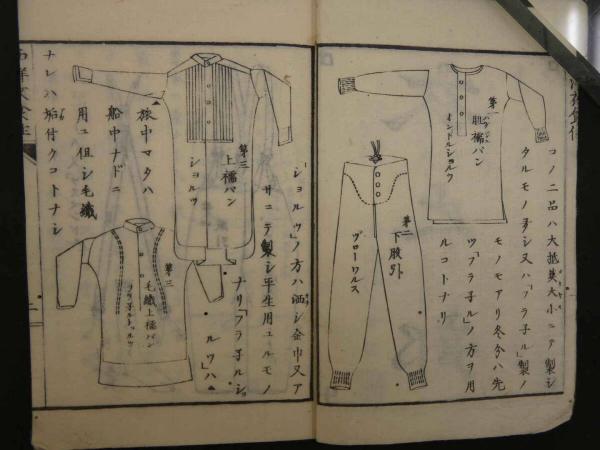 第一
肌襦バン
インドルショルツ
第二
下股引
ヅローワルス
コノ二品ハ大抵莫大小ニテ製シ
タルモノ多シ又ハ「フラ子ル」製ノ
モノモアリ冬分ハ先
ツ「フラ子ル」ノ方ヲ用
ルコトナリ
第三
上襦バン
ショルツ
「ショルツ」ノ方ハ洒シ金巾又ア
サニテ製シ平生用ユルモノ
ナリ「フラ子ルシヨ
ルツ」ハ
旅中マタハ
船中ナドニ
用ユ但シ毛織
ナレハ垢付クコトナシ
第三
毛織上襦バン
フラ子ルショルツ